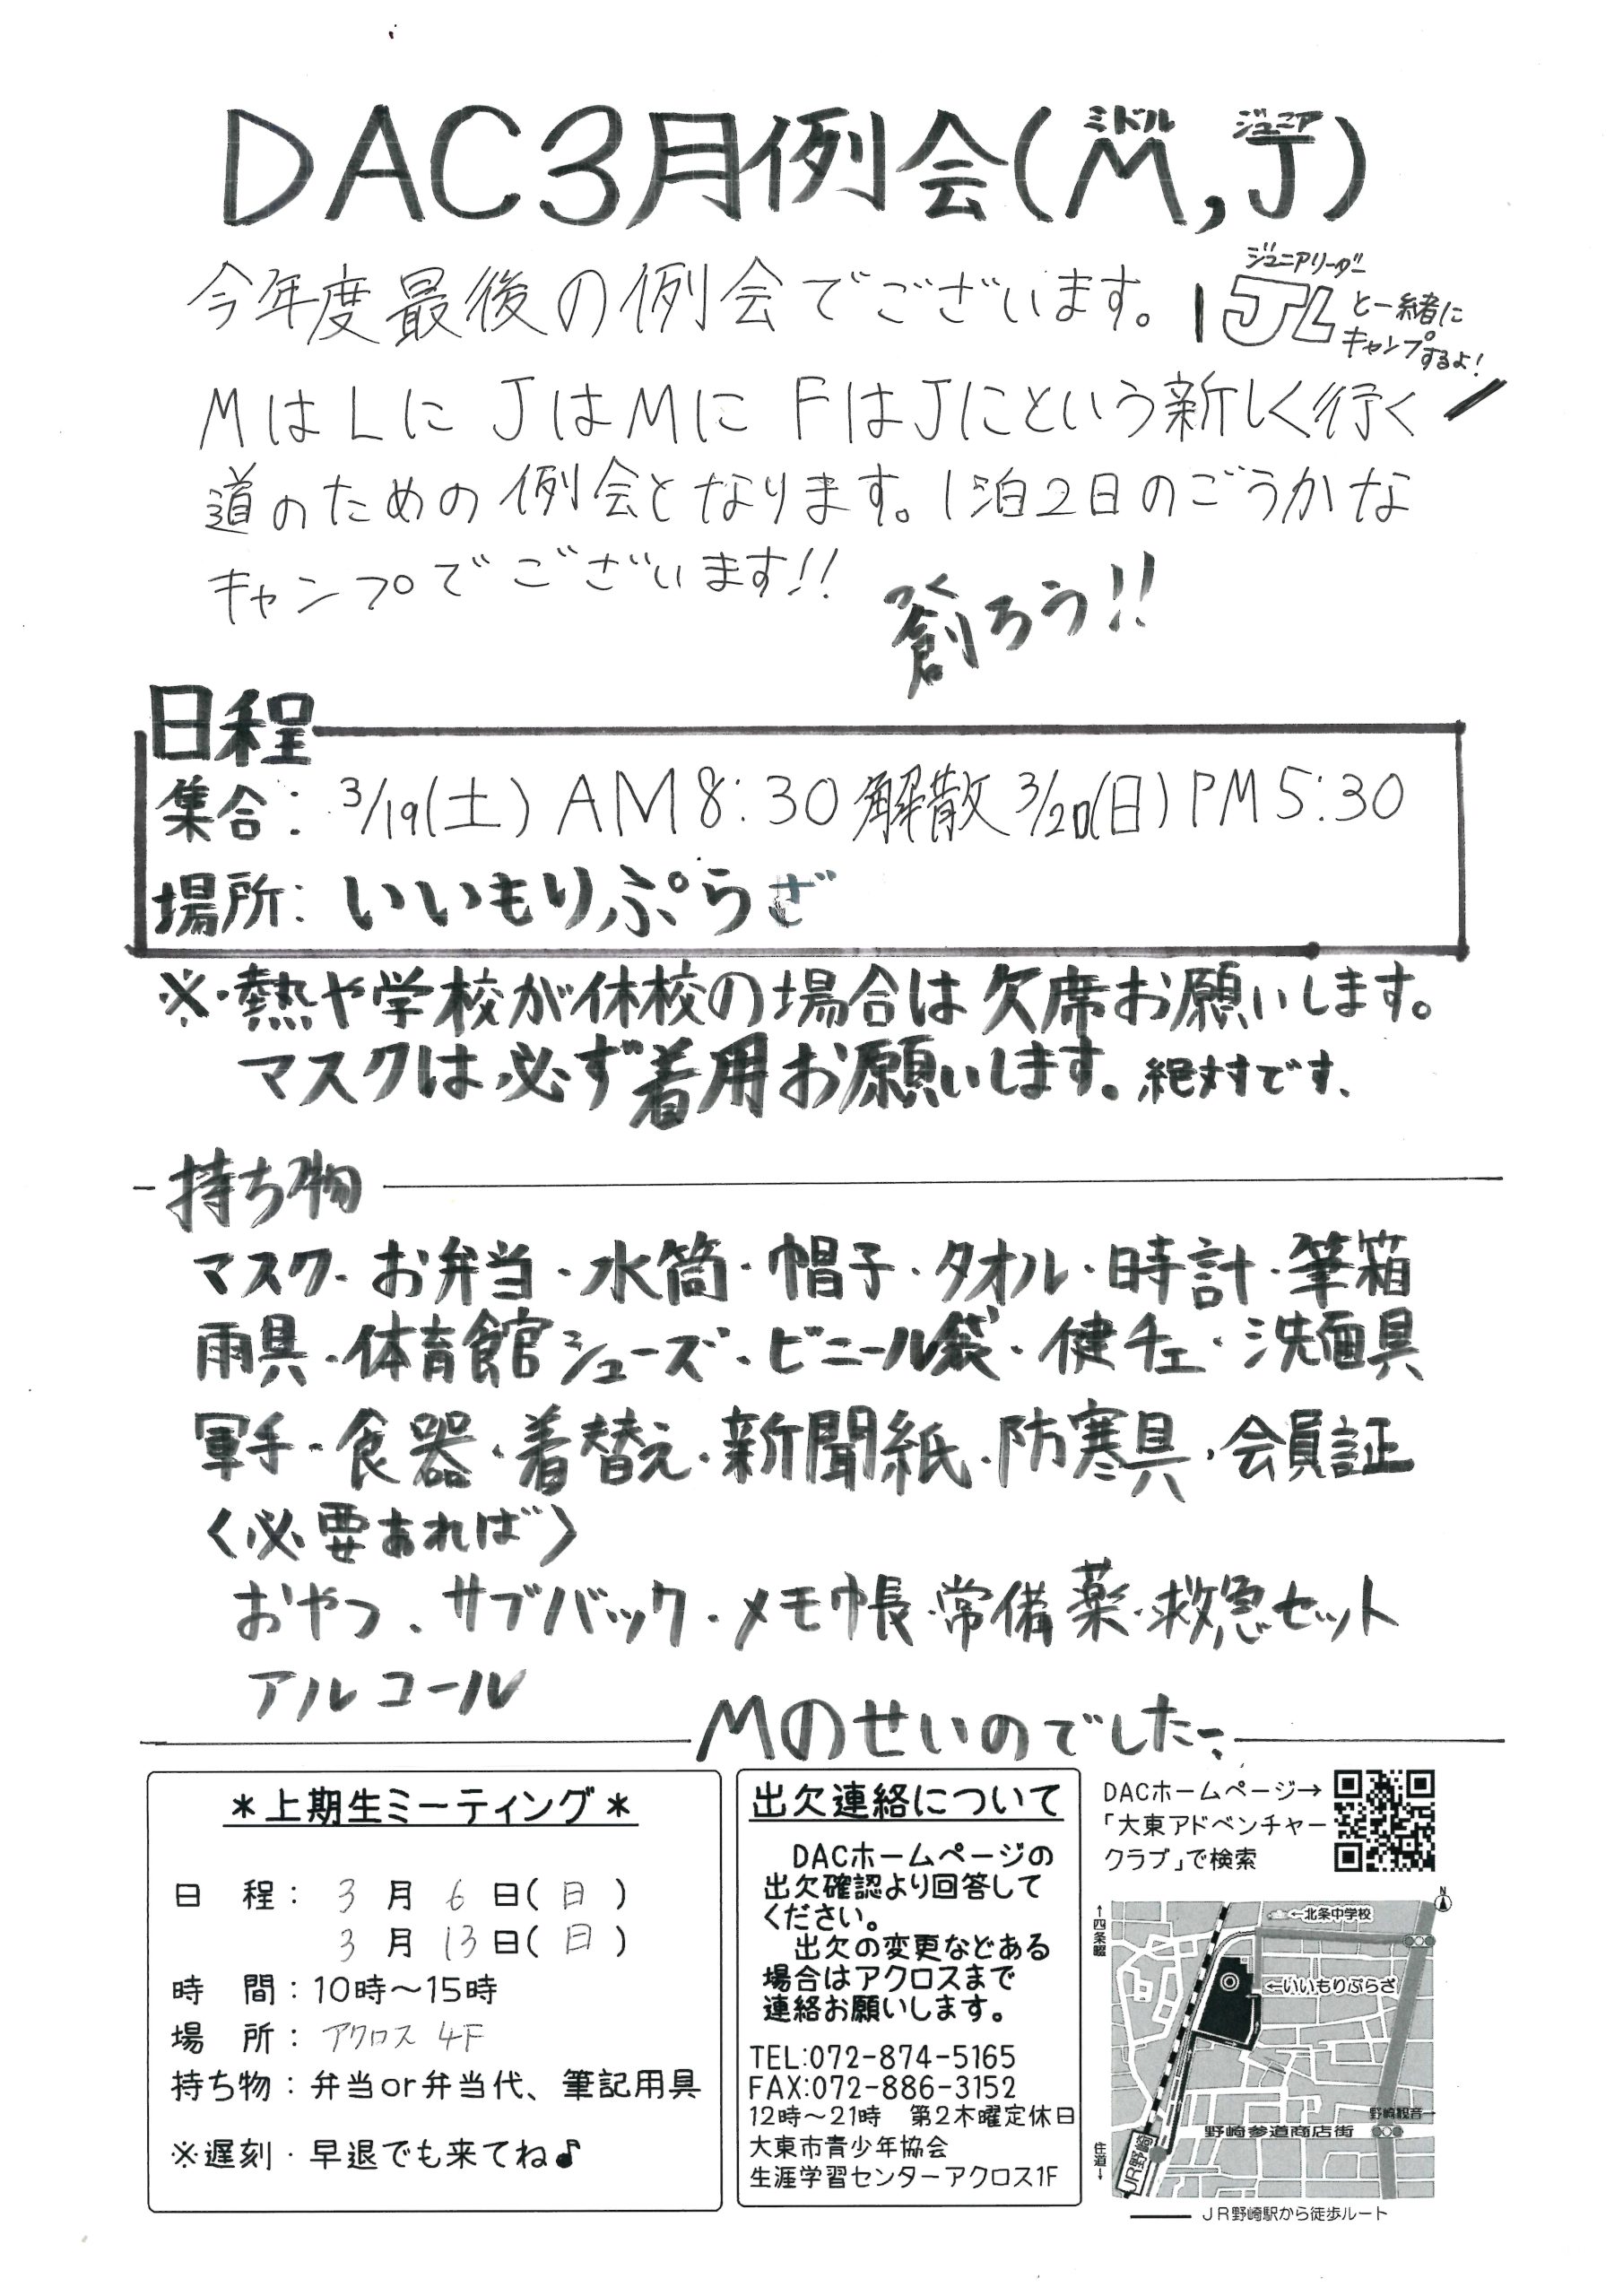 DAC3月例会(M,J)
ミドル ジュニア
今年度最後の例会でございます。
ジュニアリーダー
JLと一緒に
キャンプするよ!
MはLに JはMに FはJにという新しく行く
道のための例会となります。1泊2日のごうかな
キャンプでございます!!
つく
創ろう!!
日程
集合: 3/19(土) AM8:30 解散 3/20(日) PM5:30
場所: いいもりぷらざ
※・熱や学校が休校の場合は欠席お願いします。
マスクは必ず着用お願いします。絶対です、
持ち物
マスク・お弁当・水筒・帽子・タオル・時計・筆箱
雨具・体育館シューズ・ビニール袋・健チェ・洗面具
軍手・食器・着替え・新聞紙・防寒具・会員証
〈必要あれば〉
おやつ、サブバック・メモ帳・常備薬・救急セット
アルコール
Mのせいのでした
*上期生ミーティング*
日 程: 3月6日(日)
3月13日(日)
時 間:10時~15時
場 所:アクロス 4F
持ち物:弁当or弁当代、筆記用具
※遅刻・早退でも来てね♪
出欠連絡について
DACホームページの
出欠確認より回答して
ください。
出欠の変更などある
場合はアクロスまで
連絡お願いします。
TEL:072-874-5165
FAX:072-886-3152
12時~21時 第2木曜定休日
大東市青少年協会
生涯学習センターアクロス1F
DACホームページ→
「大東アドベンチャー
クラブ」で検索
N
↑四条畷
←北条中学校
←いいもりぷらざ
野崎観音→
野崎参道商店街
住道↓
JR野崎
JR野崎駅から徒歩ルート